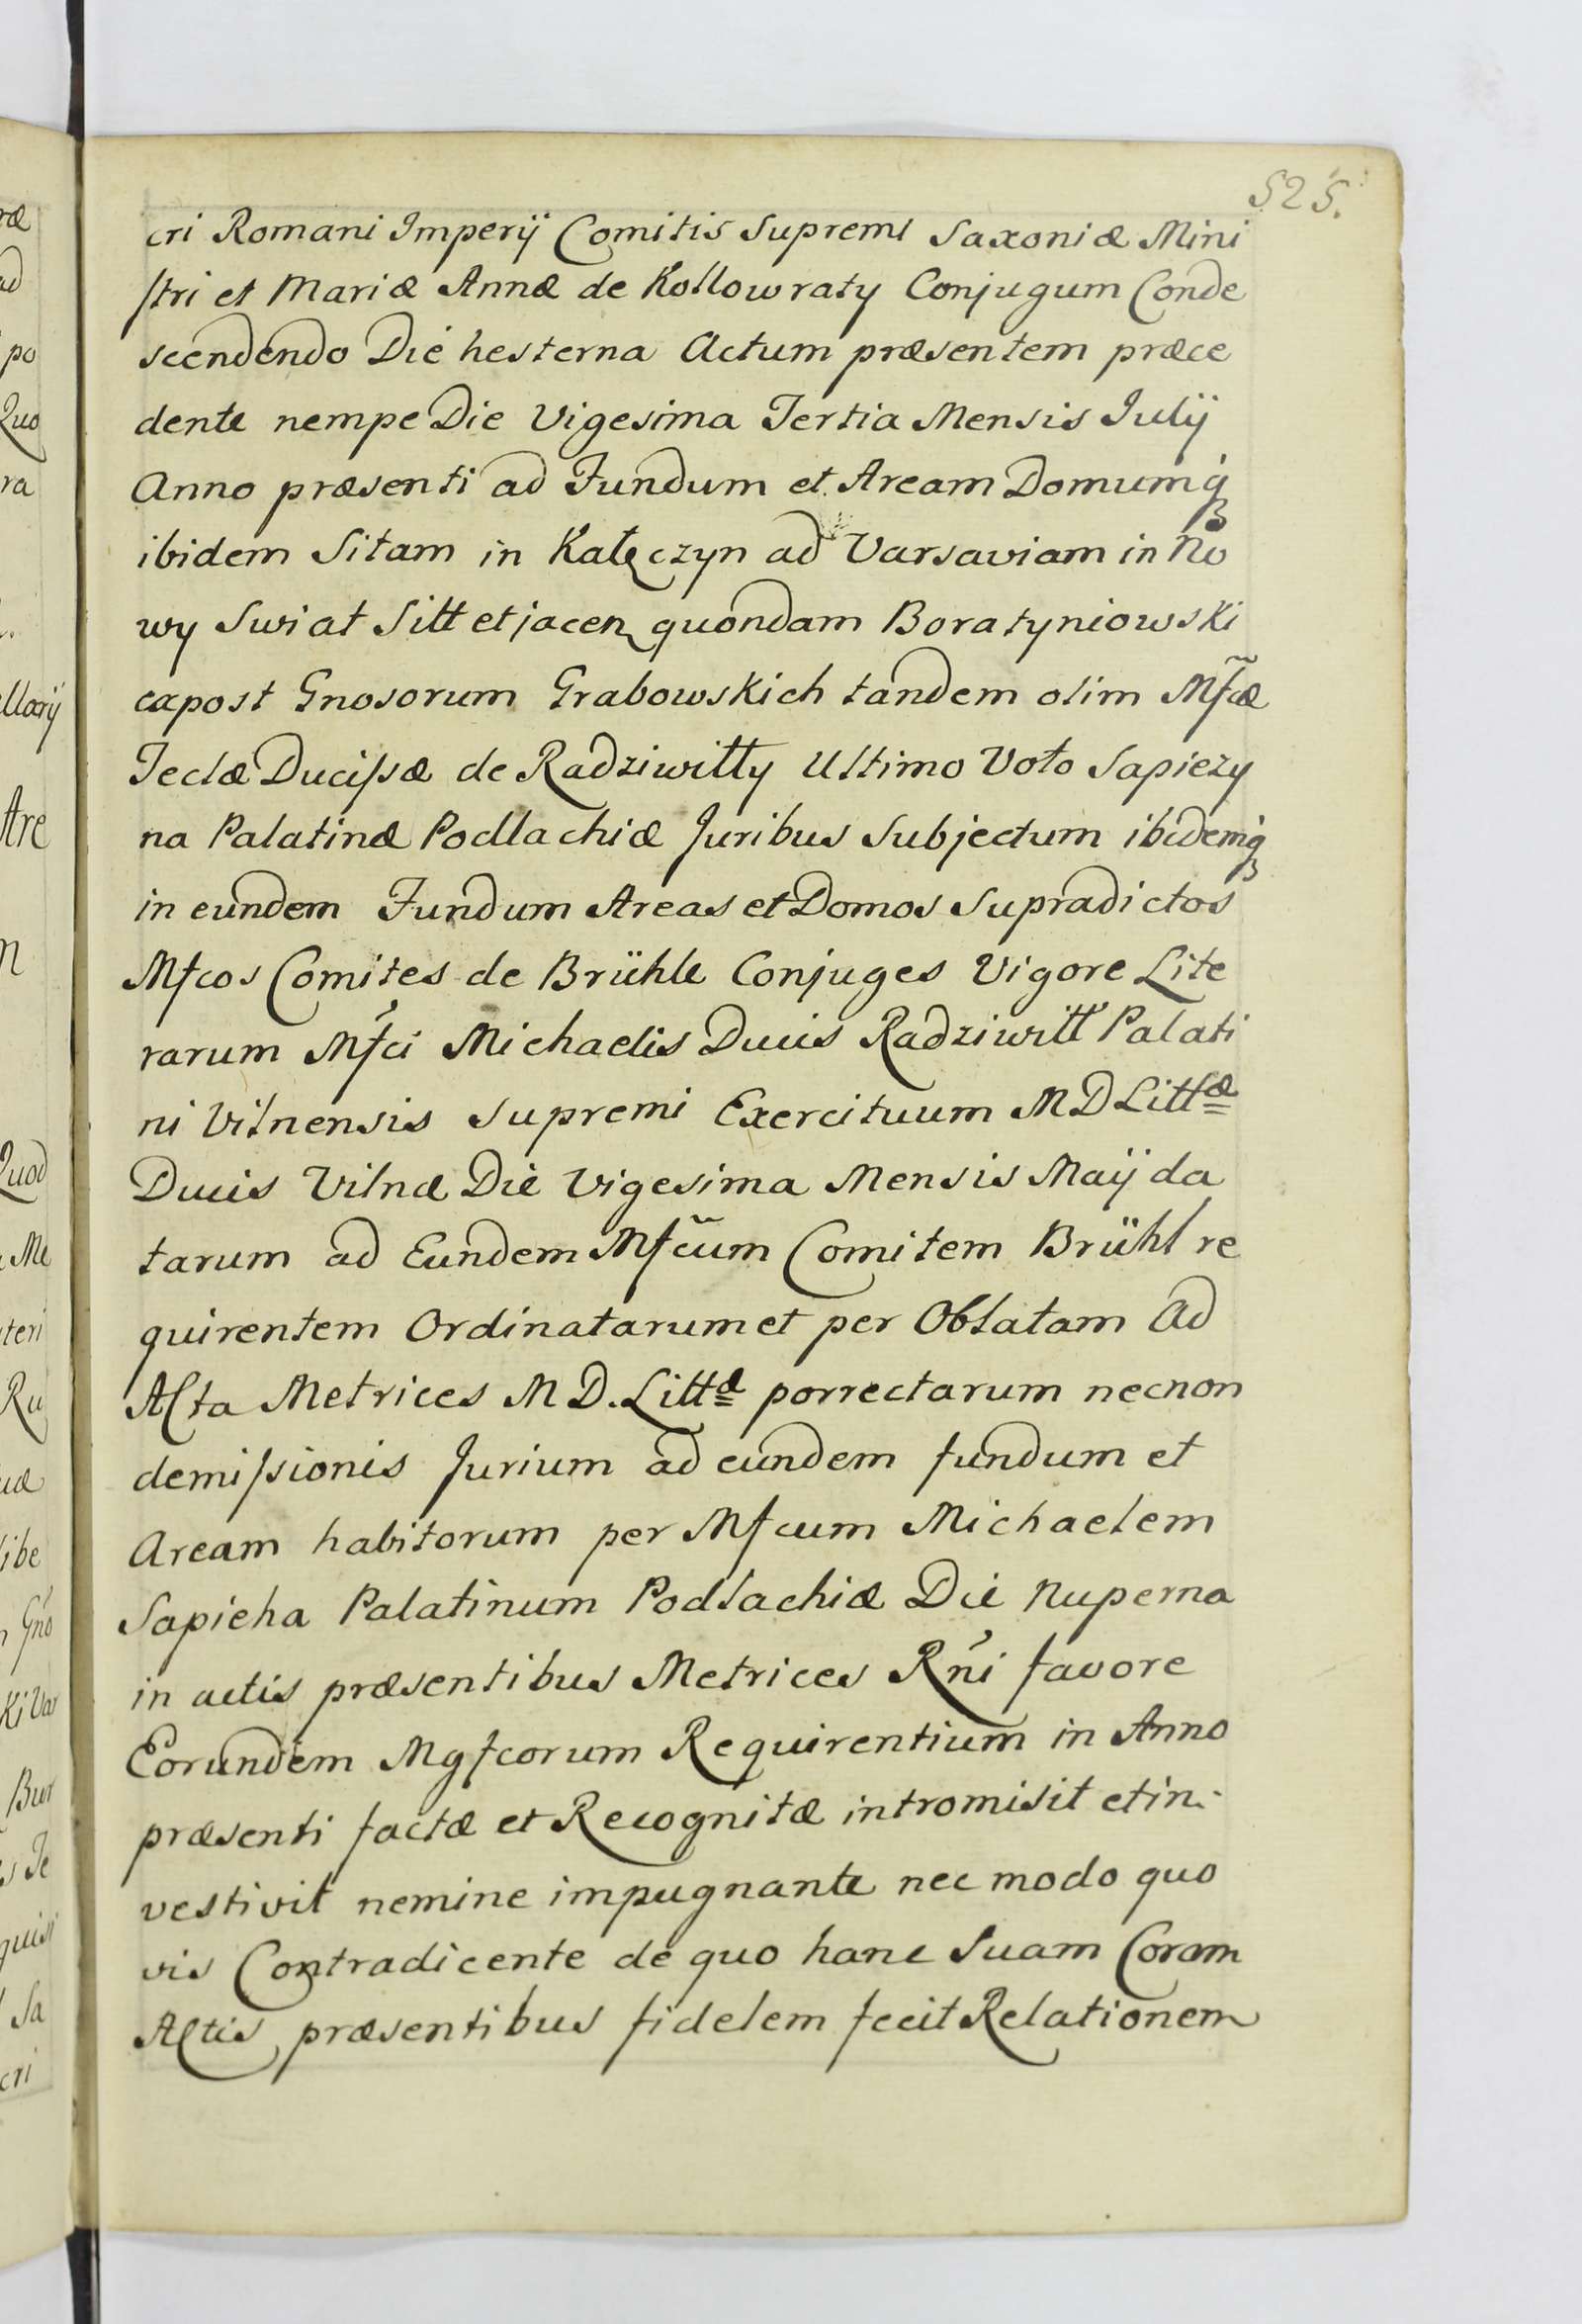 525.
cri Romani Imperij Comitis Supremi Saxoniæ Mini
stri et Mariæ Annæ de Kollowraty Conjugum Conde
scendendo Die hesterna Actum præsentem præce
dente nempe Die Vigesima Tertia Mensis Julij
Anno præsenti ad Fundum et Aream Domumq
ibidem Sitam in Kałęczyn ad Varsaviam in No
wy Swiat Sitt et jacen quondam Boratyniowski
expost Gnosorum Grabowskich tandem olim Mfcæ
Teclæ Ducissæ de Radziwiłły Ultimo Voto Sapiezy
na Palatinæ Podlachiæ Juribus Subjectum ibidemq
in eundem Fundum Areas et Domos Supradictos
Mfcos Comites de Brühle Conjuges Vigore Lite
rarum Mfci Michaelis Ducis Radziwiłł Palati
ni Vilnensis Supremi Exercituum M D Littæ
Ducis Vilnæ Die Vigesima Mensis Maij da
tarum ad Eundem Mfcum Comitem Brühl re
quirentem Ordinatarum et per Oblatam Ad
Acta Metrices M D. Littæ porrectarum necnon
demissionis Jurium ad eundem fundum et
Aream habitorum per Mfcum Michaelem
Sapieha Palatinum Podlachiæ Die nuperna
in actis præsentibus Metrices Rni favore
Eorundem Mgfcorum Requirentium in Anno
præsenti factæ et Recognitæ intromisit et in-
vestivit nemine impugnante nec modo quo
vis Contradicente de quo hanc Suam Coram
Actis præsentibus fidelem fecit Relationem